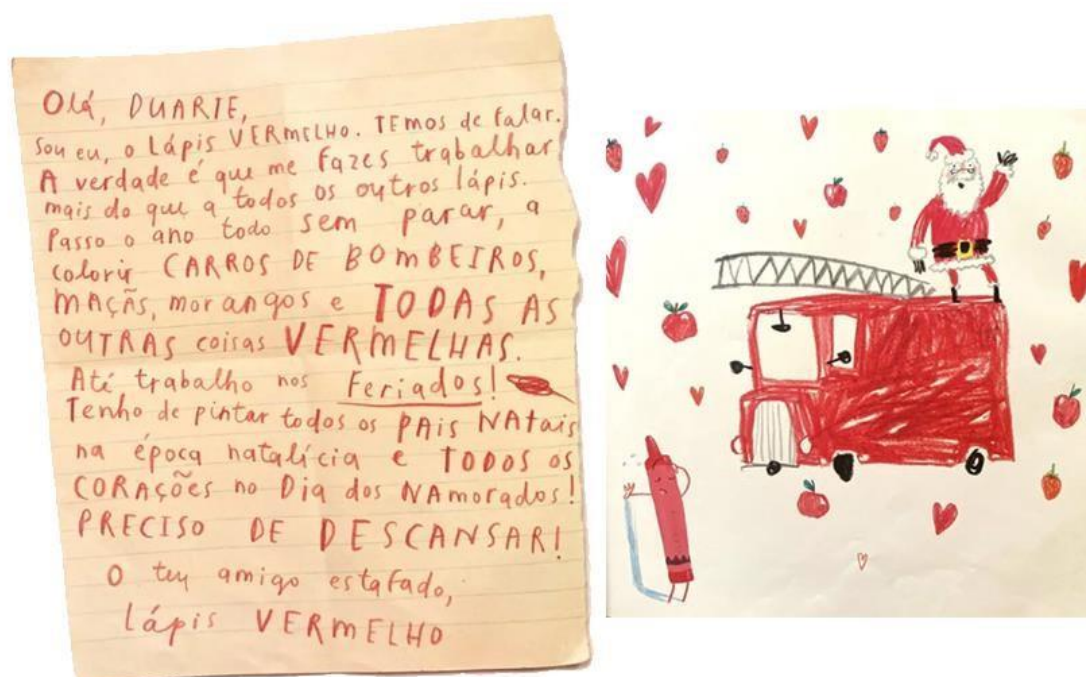 Olá, DUARTE,
Sou eu, o Lápis VERMELHO. TEmos de falar.
A verdade é que me fazes trabalhar
mais do que a todos os outros lápis.
Passo o ano todo sem parar, a
colorir CARROS DE BOMBEIROS,
MAÇÃS, morangos e TODAS AS
OUTRAS coisas VERMELHAS.
Até trabalho nos Feriados!
Tenho de pintar todos os PAis NAtais
na época natalícia e TODOS OS
CORAÇÕES no Dia dos NAmorados!
PRECISO DE DESCANSAR!
O teu amigo estafado,
Lápis VERMELHO